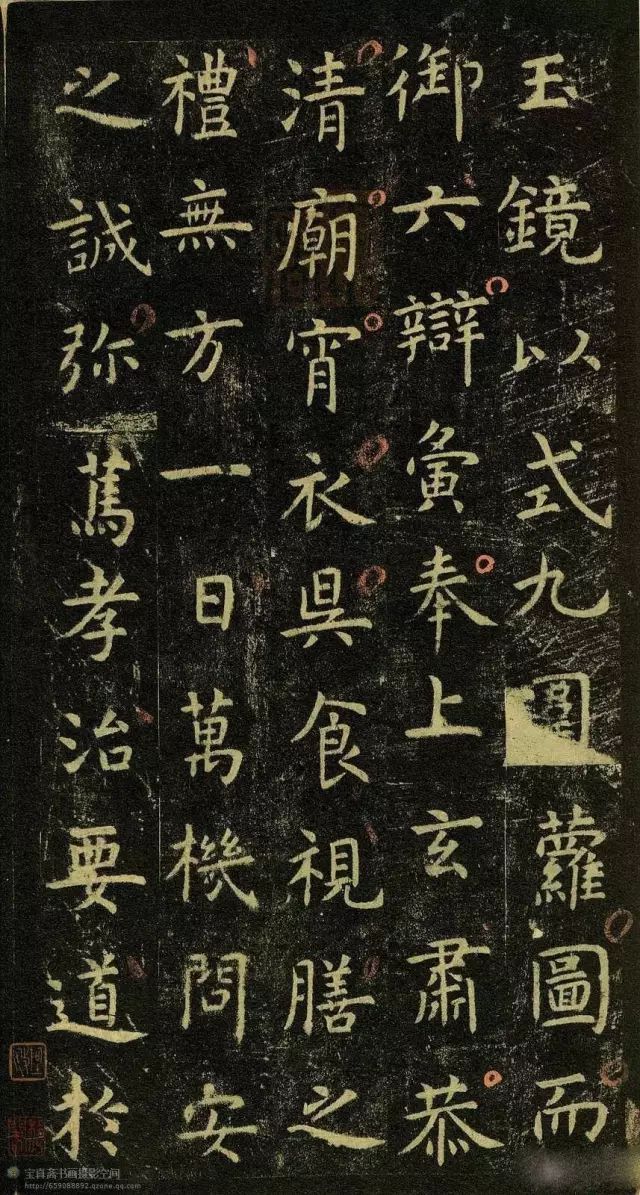 玉鏡以式九圍蘿圖而
御六辯寅奉上玄肅恭
清廟宵衣昃食視膳之
禮無方一日萬機問安
之誠弥篤孝治要道於
宝真斋书画摄影空间
http://659088892.qzone.qq.com